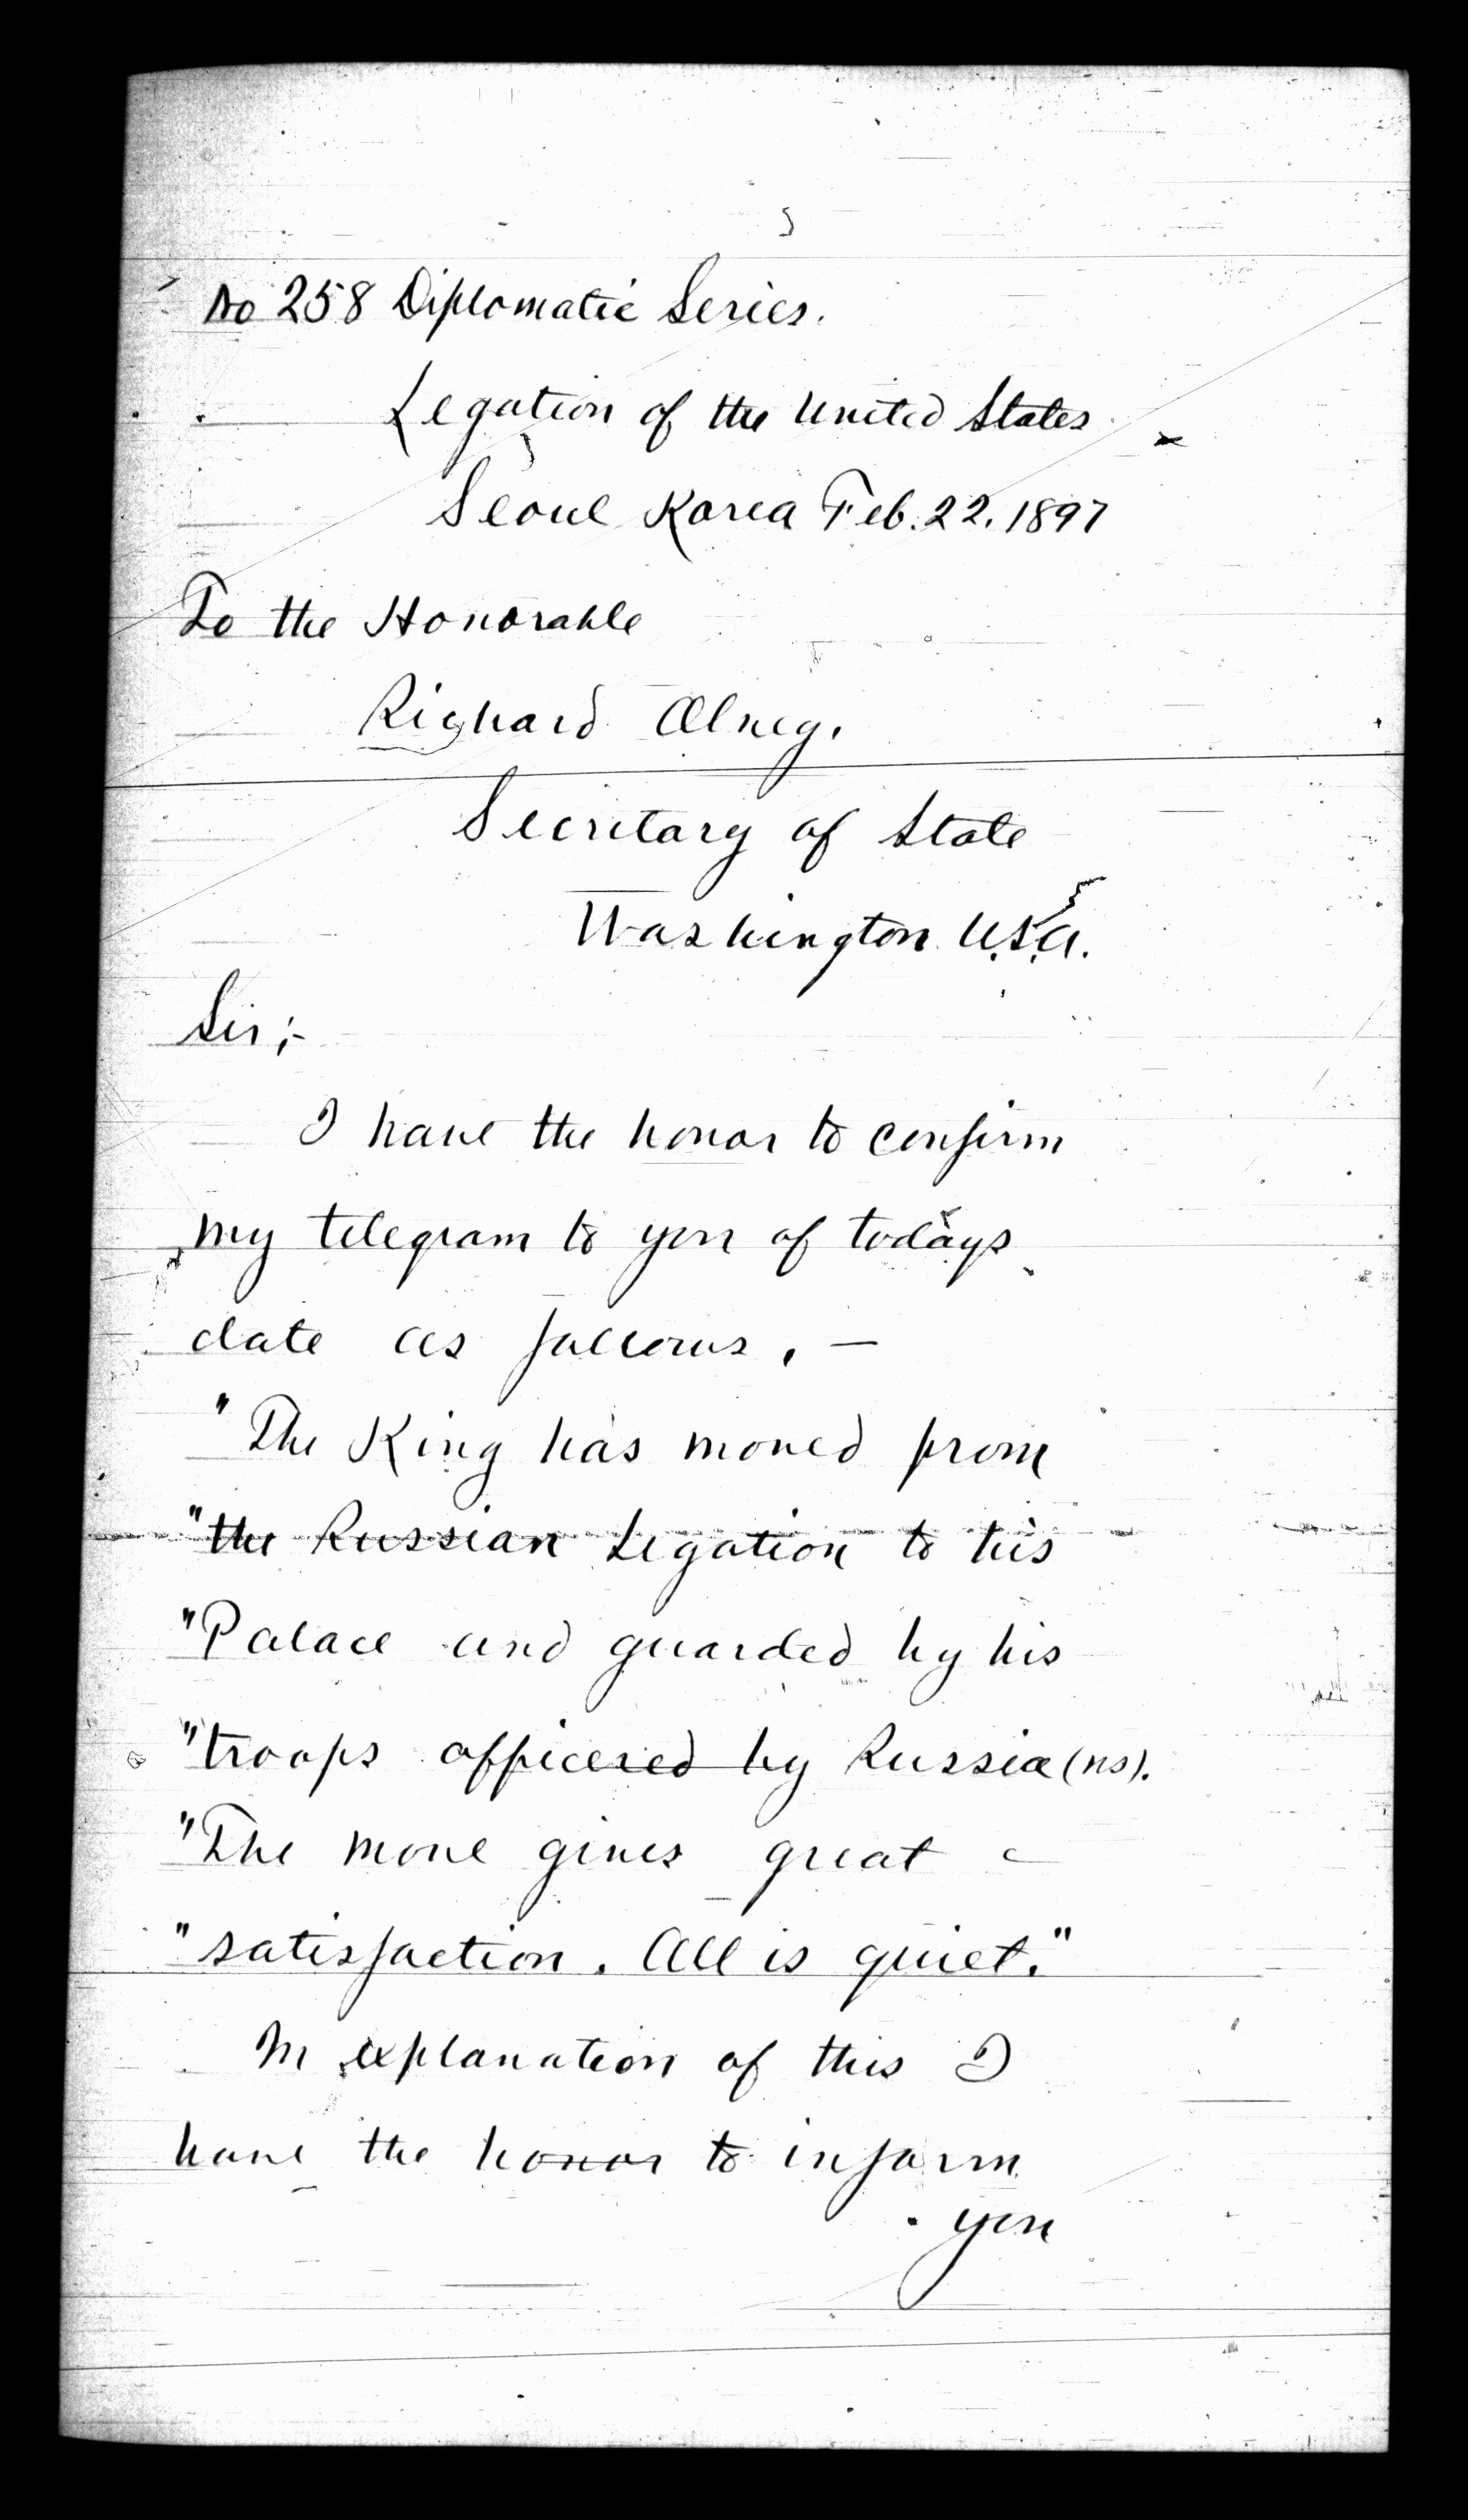 No 258 Diplomatic Series.
Legation of the United States
Seoul Korea Feb. 22. 1897
To the Honorable
Richard Olney.
Secretary of State
Washington U.S.A.
Sir;-
I have the honor to confirm
my telegram to you of todays
date as follows. —
"The King has moved from
"the Russian Legation to his
"Palace and guarded by his
"troops officered by Russia(ns).
"The move gives great
"satisfaction. All is quiet."
In explanation of this I
have the honor to inform
you